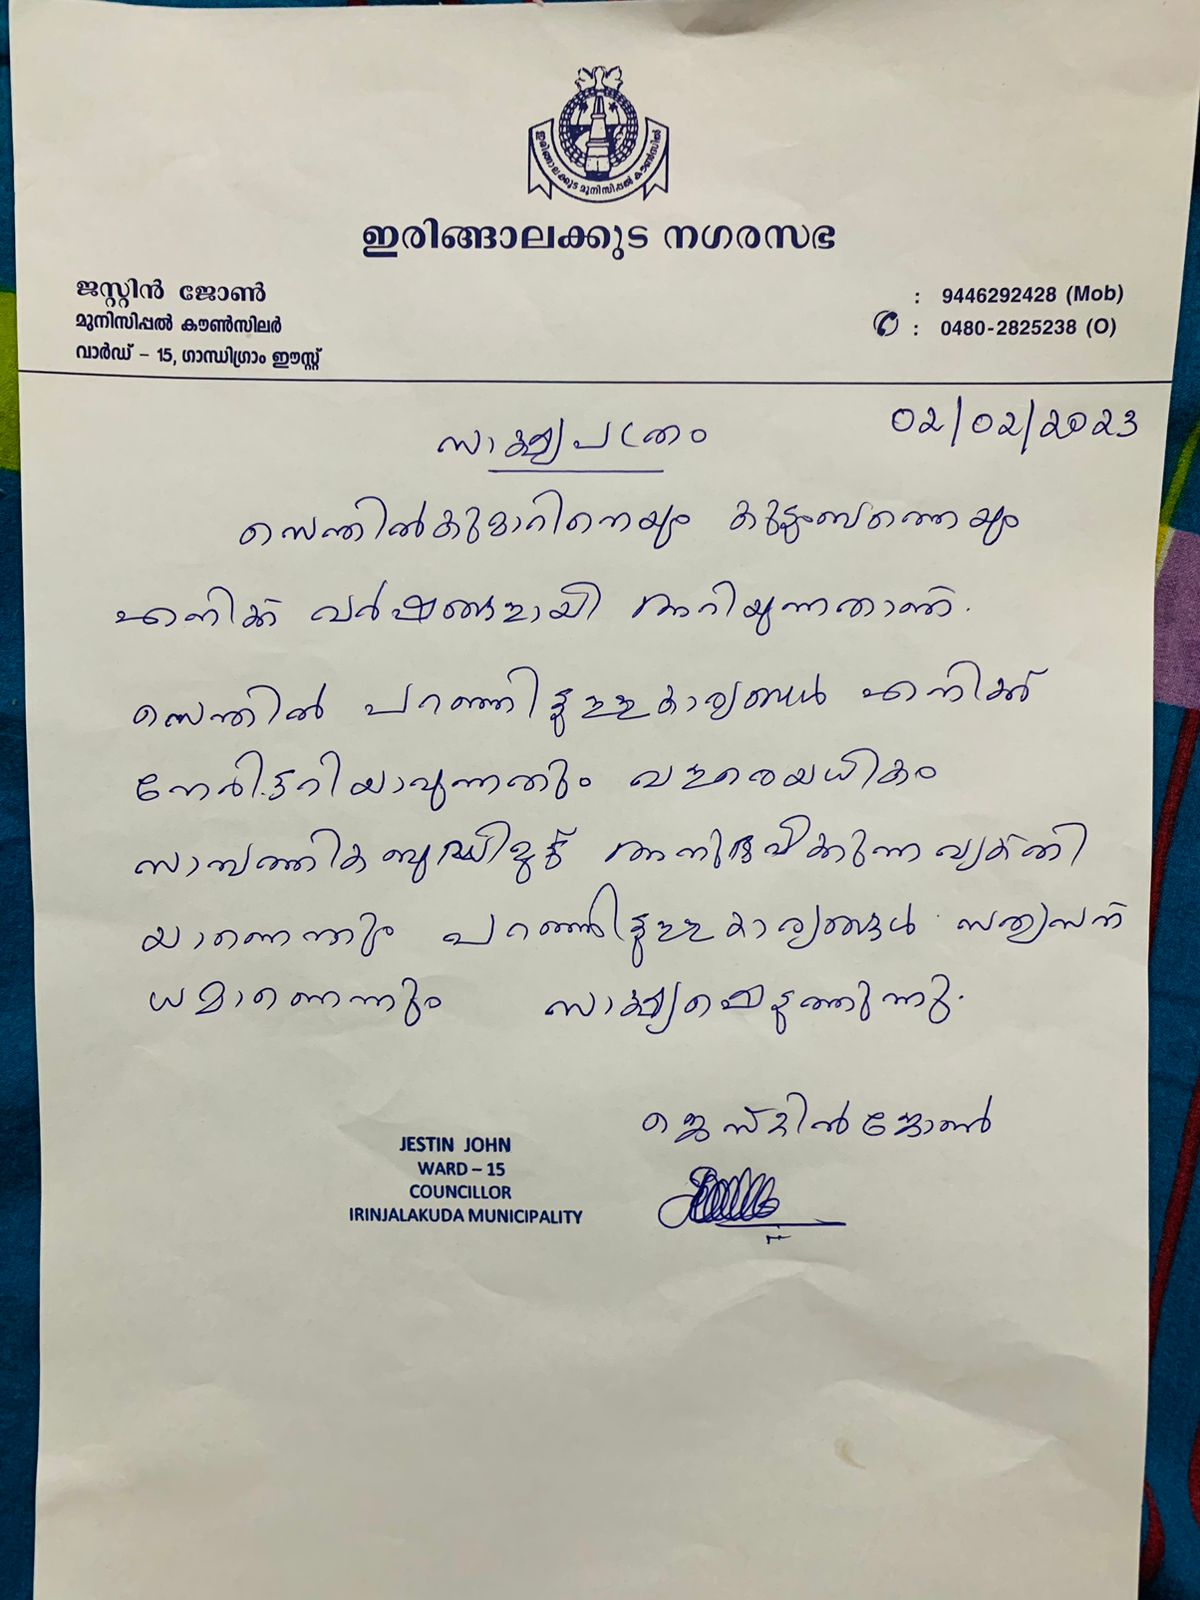 ഇരിങ്ങാലക്കുട മുനിസിപ്പൽ കൗൺസിൽ
ഇരിങ്ങാലക്കുട നഗരസഭ
ജസ്റ്റിൻ ജോൺ
മുനിസിപ്പൽ കൗൺസിലർ
വാർഡ് – 15, ഗാന്ധിഗ്രാം ഈസ്റ്റ്
: 9446292428 (Mob)
✆ : 0480-2825238 (O)
02/02/2023
സാക്ഷ്യപത്രം
സെന്തിൽകുമാറിനെയും കുടുംബത്തെയും
എനിക്ക് വർഷങ്ങളായി അറിയുന്നതാണ്.
സെന്തിൽ പറഞ്ഞിട്ടുള്ളകാര്യങ്ങൾ എനിക്ക്
നേരിട്ടറിയാവുന്നതും വളരെയധികം
സാമ്പത്തികബുദ്ധിമുട്ട് അനുഭവിക്കുന്നവ്യക്തി
യാണെന്നും പറഞ്ഞിട്ടുള്ളകാര്യങ്ങൾ സത്യസന്
ധമാണെന്നും സാക്ഷ്യപ്പെടുത്തുന്നു.
ജെസ്റ്റിൻജോൺ
JESTIN JOHN
WARD – 15
COUNCILLOR
IRINJALAKUDA MUNICIPALITY